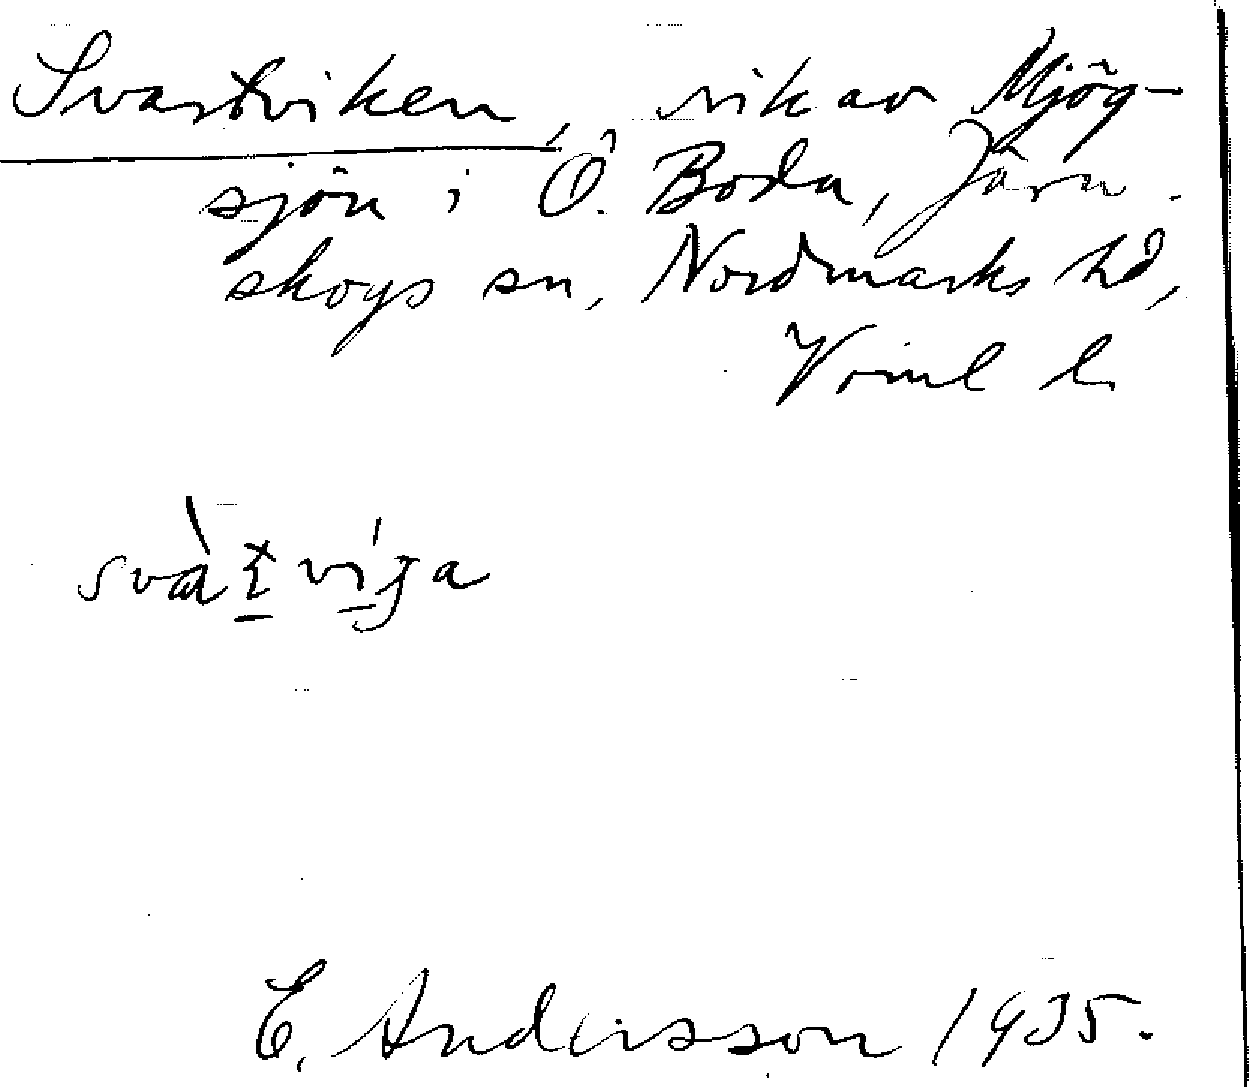 Svartviken, vik av Mjög-
sjön i Ö. Boda, Järn-
skogs sn, Nordmarks hd,
Värml l.
E. Andersson 1935.